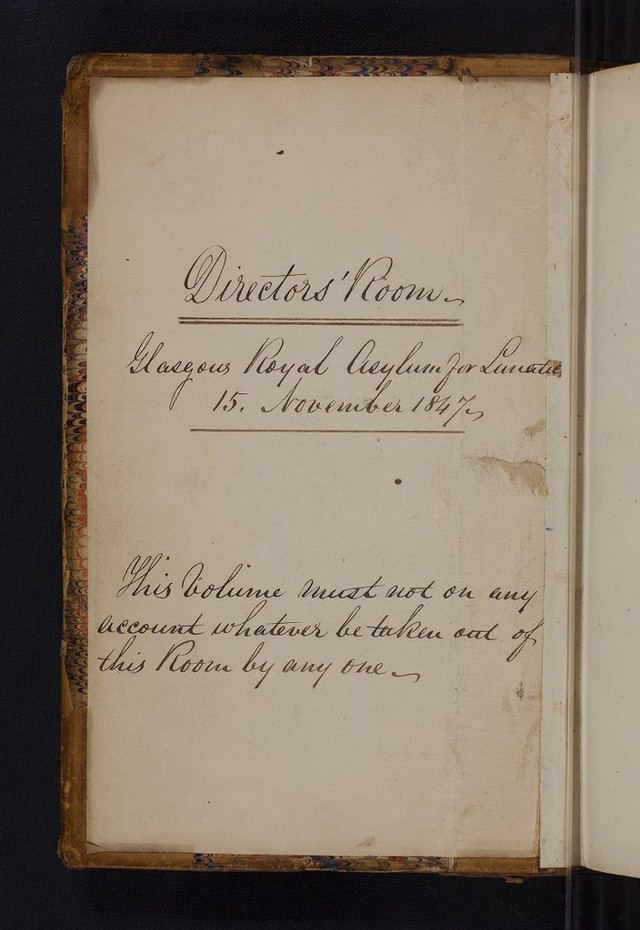 Directors' Room
Glasgow Royal Asylum for Lunatic
15. November 1847
This Volume must not on any
account whatever be taken out of
this Room by any one